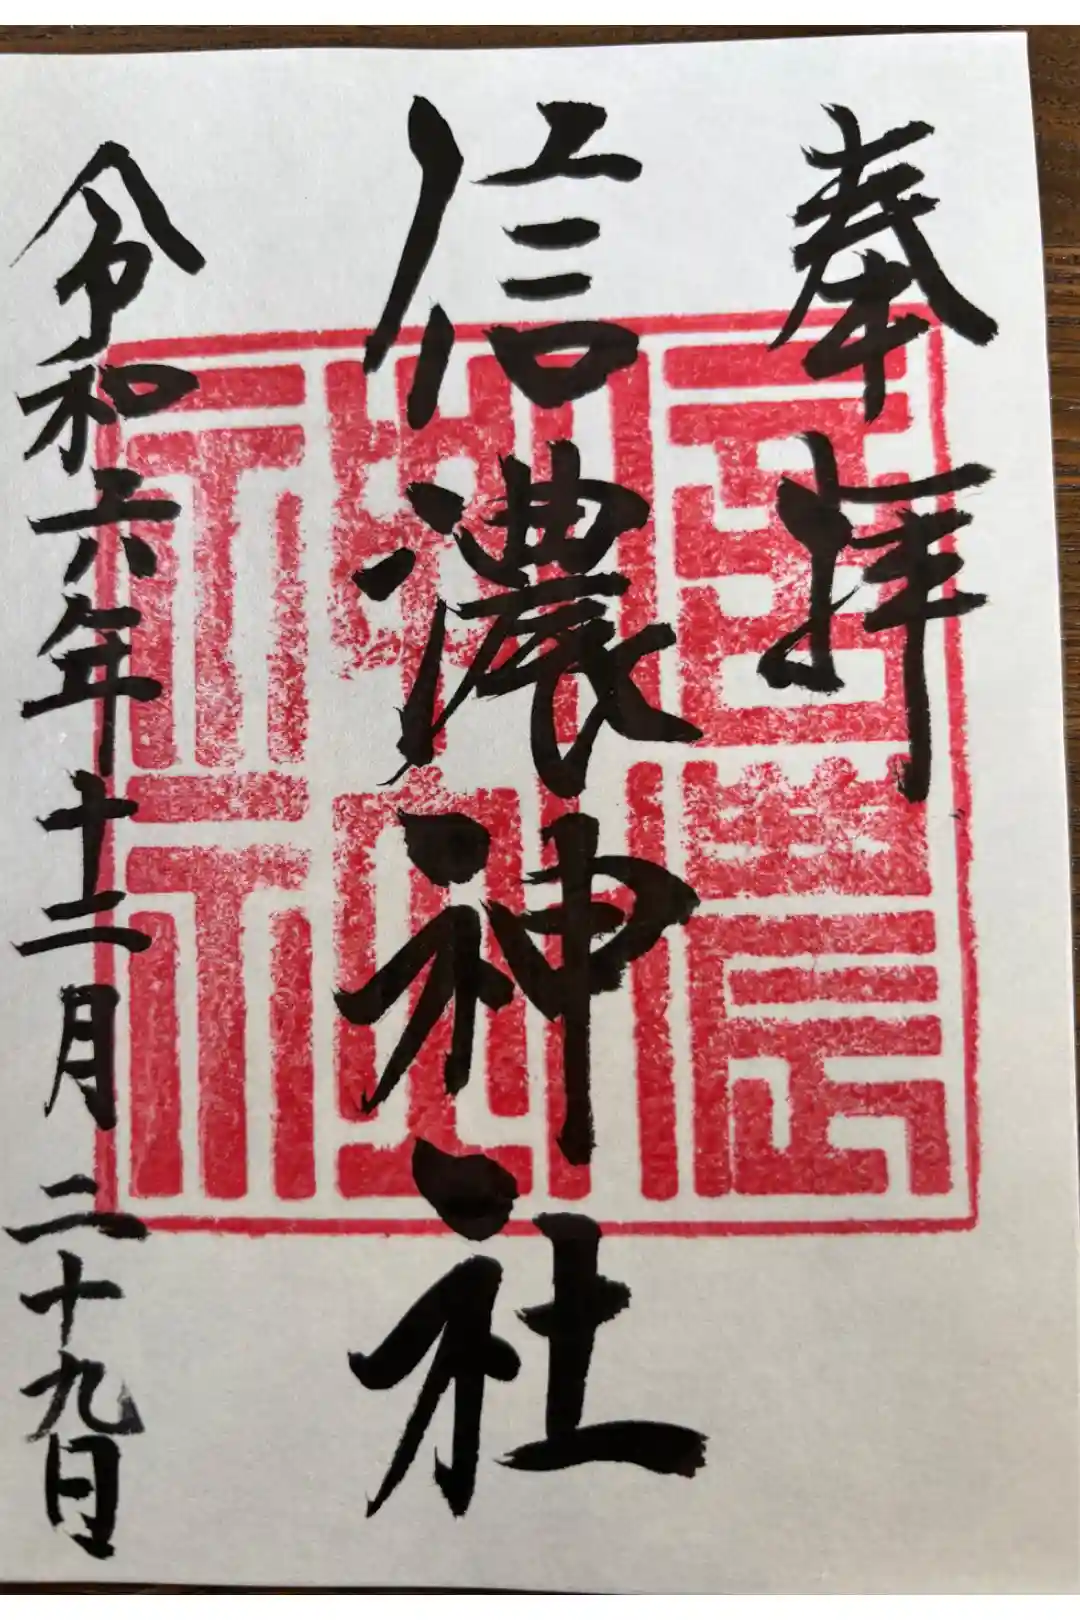 奉拝
信濃神社
令和六年十二月二十九日